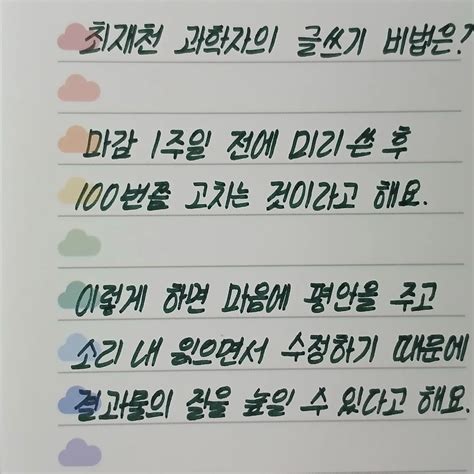 최재천 과학자의 글쓰기 비법은?
마감 1주일 전에 미리 쓴 후
100번쯤 고치는 것이라고 해요.
이렇게 하면 마음에 평안을 주고
소리 내 읽으면서 수정하기 때문에
결과물의 질을 높일 수 있다고 해요.